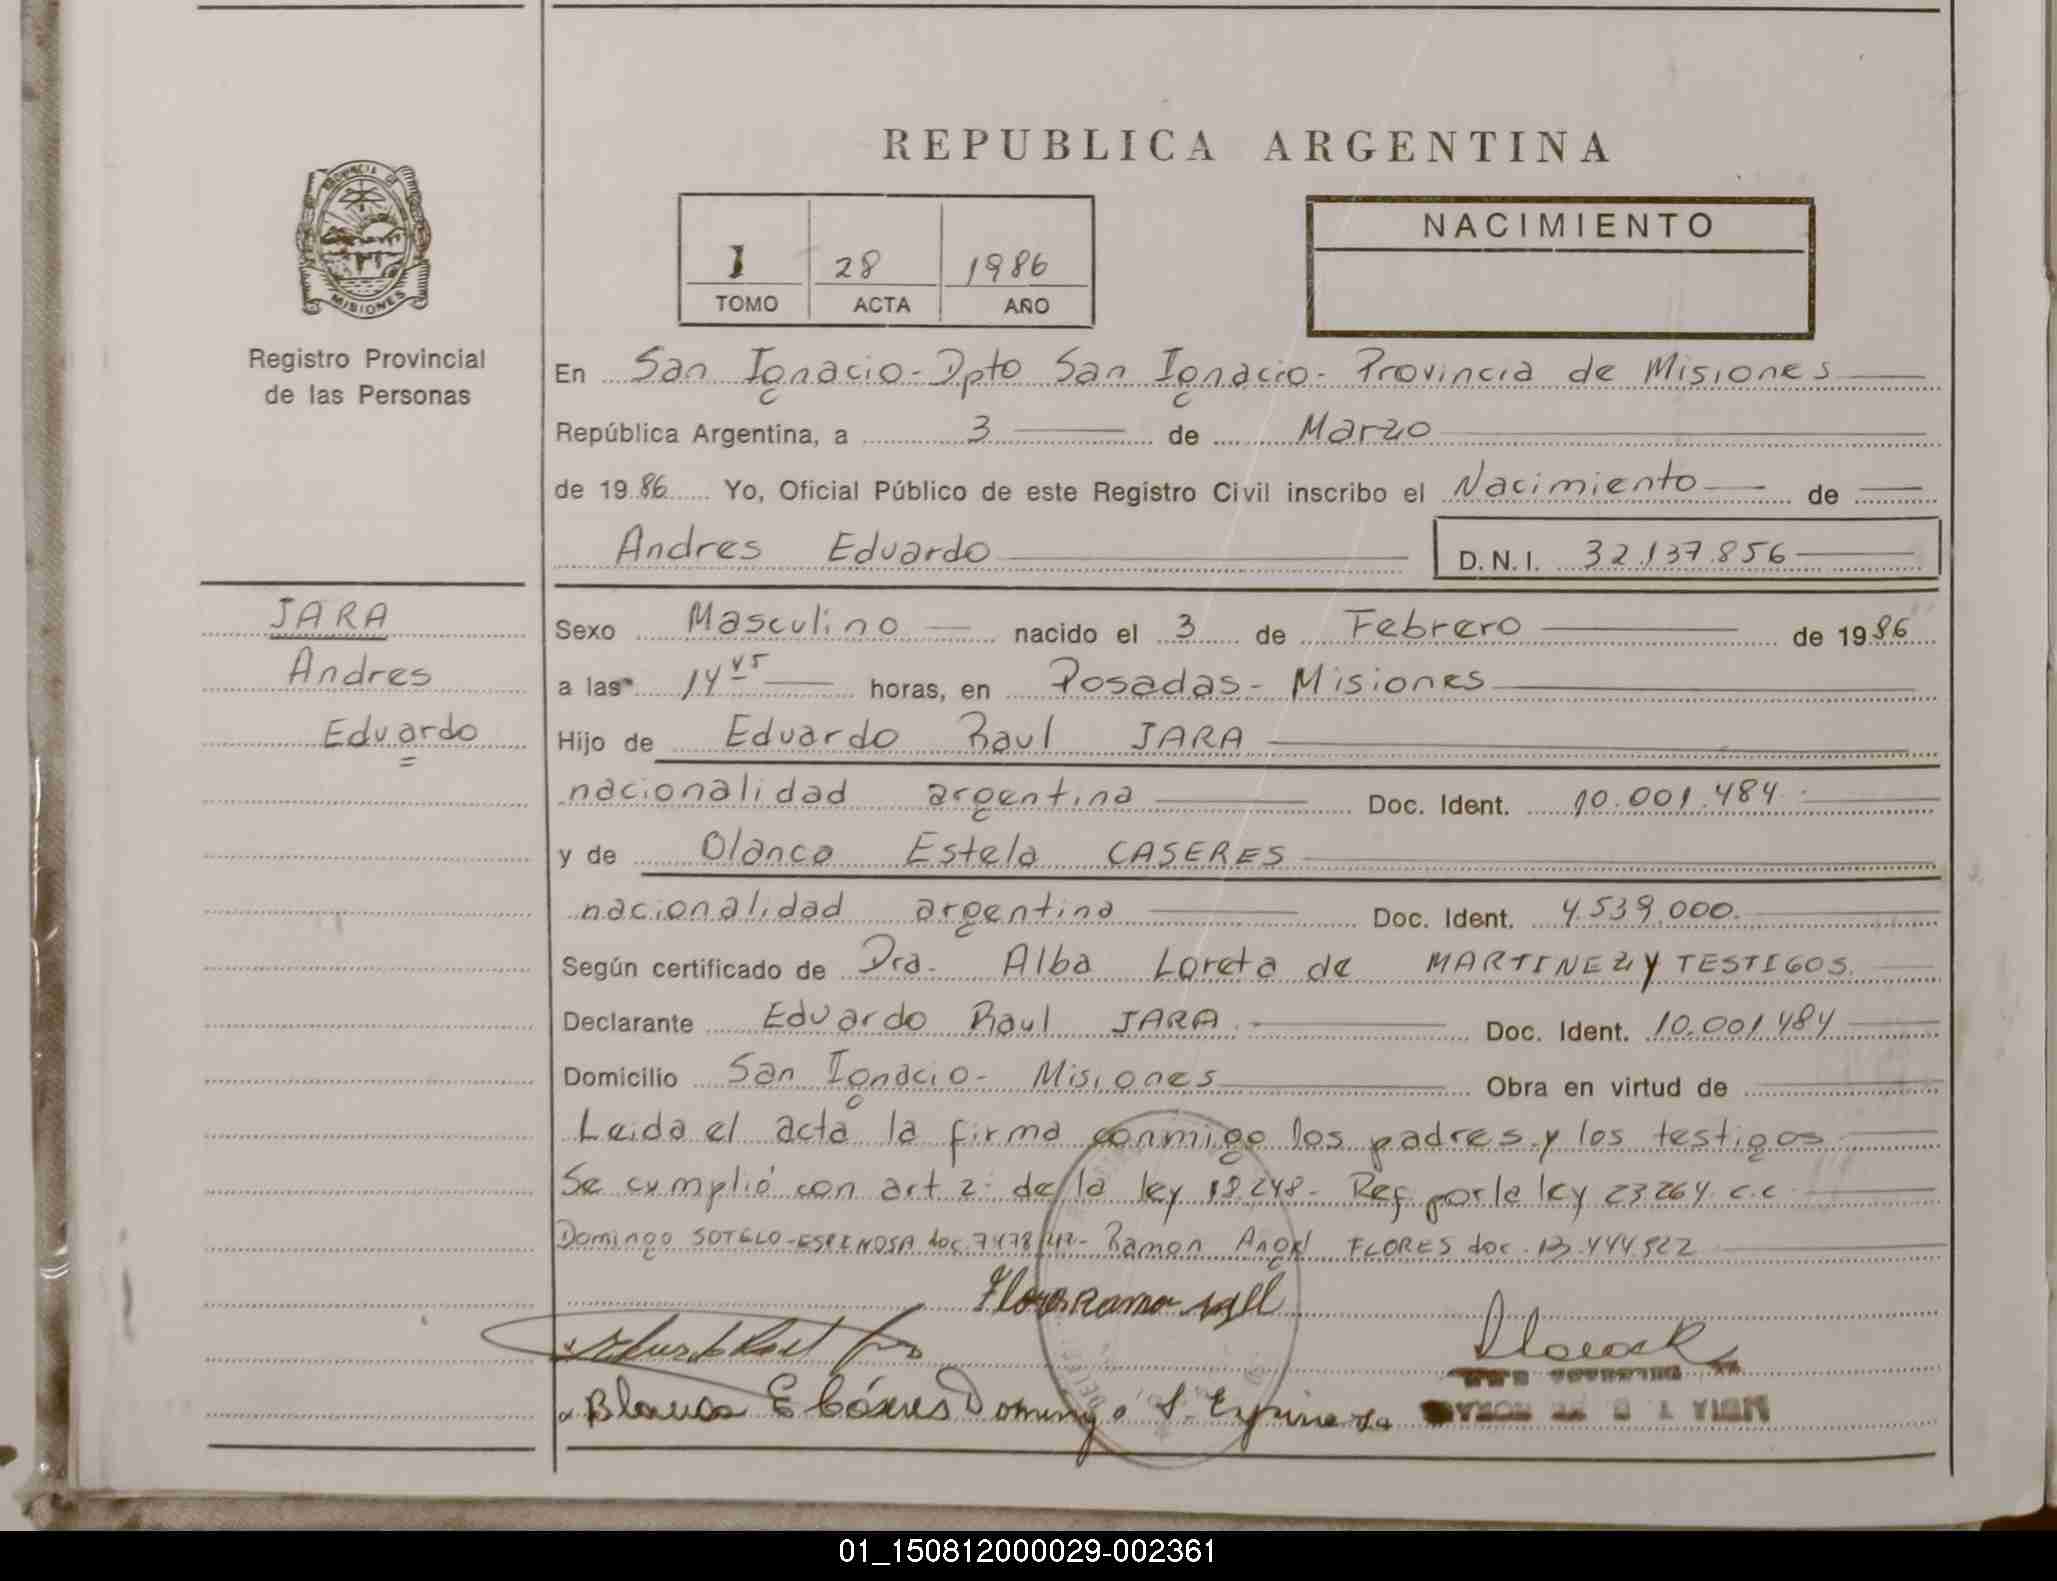 REPUBLICA ARGENTINA
PROVINCIA DE
MISIONES
Registro Provincial
de las Personas
1 28 1986
TOMO ACTA AÑO
NACIMIENTO
En San Ignacio - Dpto San Ignacio - Provincia de Misiones
República Argentina, a 3 de Marzo
de 1986 Yo, Oficial Público de este Registro Civil inscribo el Nacimiento de
Andres Eduardo D.N.I. 32.137.856
JARA
Andres
Eduardo
Sexo Masculino nacido el 3 de Febrero de 1986
a las 14 45 horas, en Posadas - Misiones
Hijo de Eduardo Raul JARA
nacionalidad argentina Doc. Ident. 10.001.484
y de Blanca Estela CASERES
nacionalidad argentina Doc. Ident. 4.539.000
Según certificado de Dra. Alba Loreta de MARTINEZ y TESTIGOS.
Declarante Eduardo Raul JARA Doc. Ident. 10.001.484
Domicilio San Ignacio - Misiones Obra en virtud de
Leida el acta la firma conmigo los padres y los testigos
Se cumplió con art 2 de la ley 18248 - Ref por la ley 23264 c.c
Domingo SOTELO - ESPINOSA doc Ramon Angel FLORES doc. 13.444.522
Flores Ramon
Blanca E Cáseres Domingo S. Espinoza
01_150812000029-002361